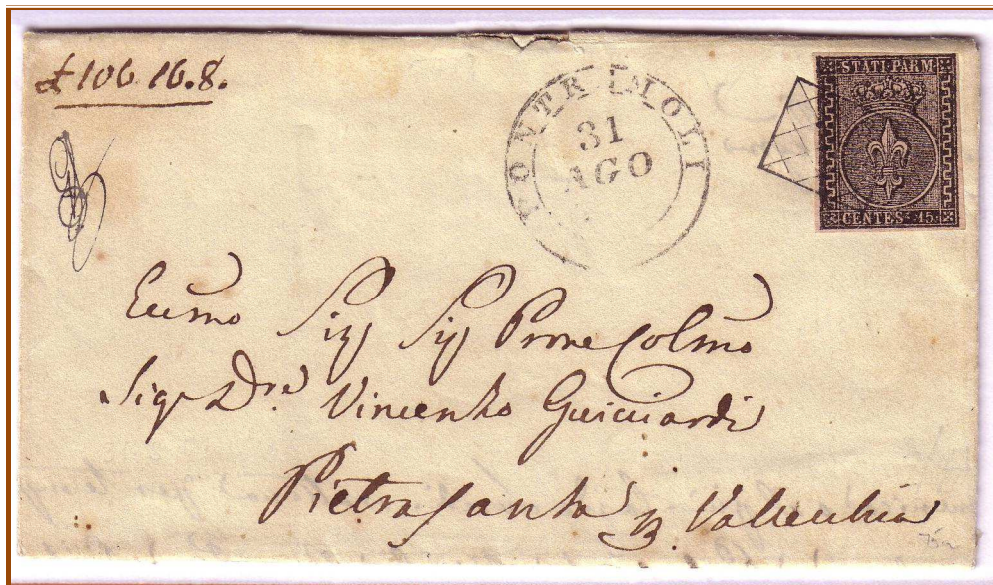 £ 106.16.8.
PONTREMOLI
31
AGO
STATI PARM
CENTES. 15
Ecc̅mo Sig Sig Prone Colmo
Sigr Dre Vincenzo Guicciardi
Pietra Santa Vallecchia